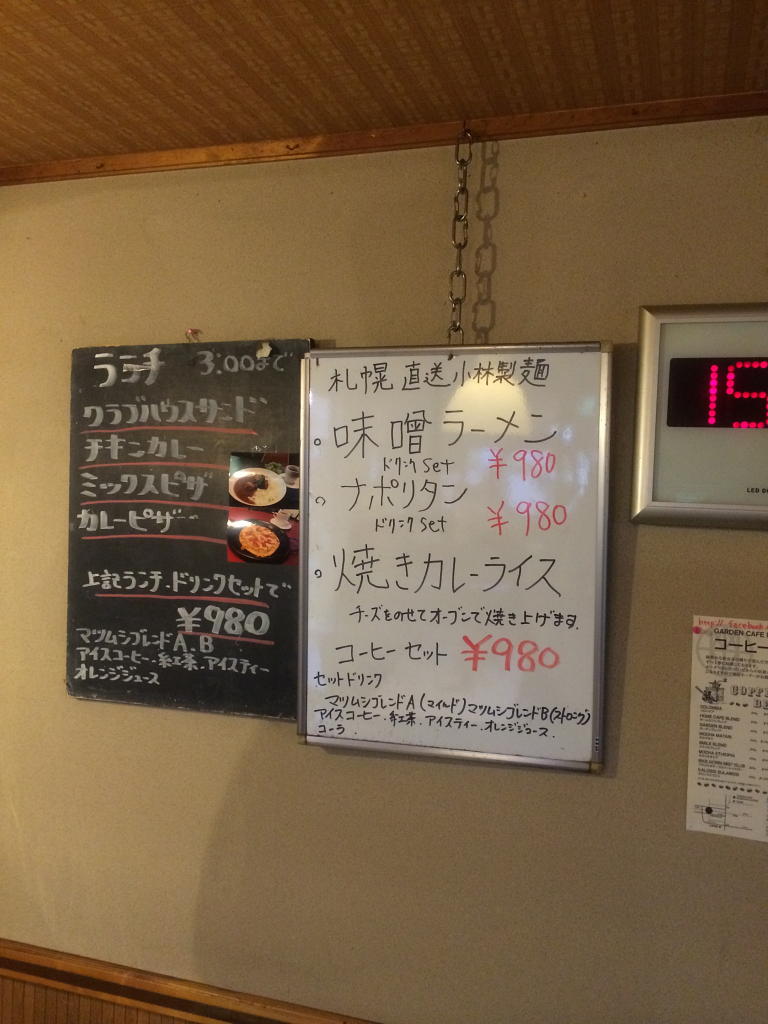 ランチ 3:00まで
クラブハウスサンド
チキンカレー
ミックスピザ
カレーピザ
上記ランチ、ドリンクセットで
¥980
マツムシブレンドA、B
アイスコーヒー、紅茶、アイスティー
オレンジジュース
札幌 直送 小林製麺
。味噌ラーメン
ドリンクset ¥980
。ナポリタン
ドリンクset ¥980
。焼きカレーライス
チーズをのせてオーブンで焼き上げます。
コーヒーセット ¥980
セットドリンク
マツムシブレンドA(マイルド)マツムシブレンドB(ストロング)
アイスコーヒー、紅茶、アイスティー、オレンジジュース、
コーラ
15
GARDEN CAFE
コーヒー
COLOMBIA
HOME CAFE BLEND
GARDEN BLEND
MOCHA MATARI
MILD BLEND
MOCHA ETHIOPIA